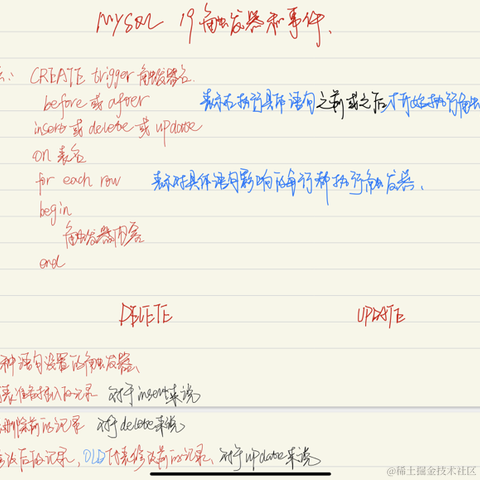 MySQL 19 触发器和事件.
: CREATE trigger 触发器名
before 或 after 表示在执行具体语句之前或之后才开始执行触
insert 或 delete 或 update
on 表名
for each row 表示对具体语句影响的每行都执行触发器.
begin
触发器内容
end
DELETE UPDATE
种语句设置的触发器.
表准备插入的记录 对于insert来说
删除前的记录 对于delete来说
改后的记录, OLD代表修改前的记录. 对于update来说
@稀土掘金技术社区